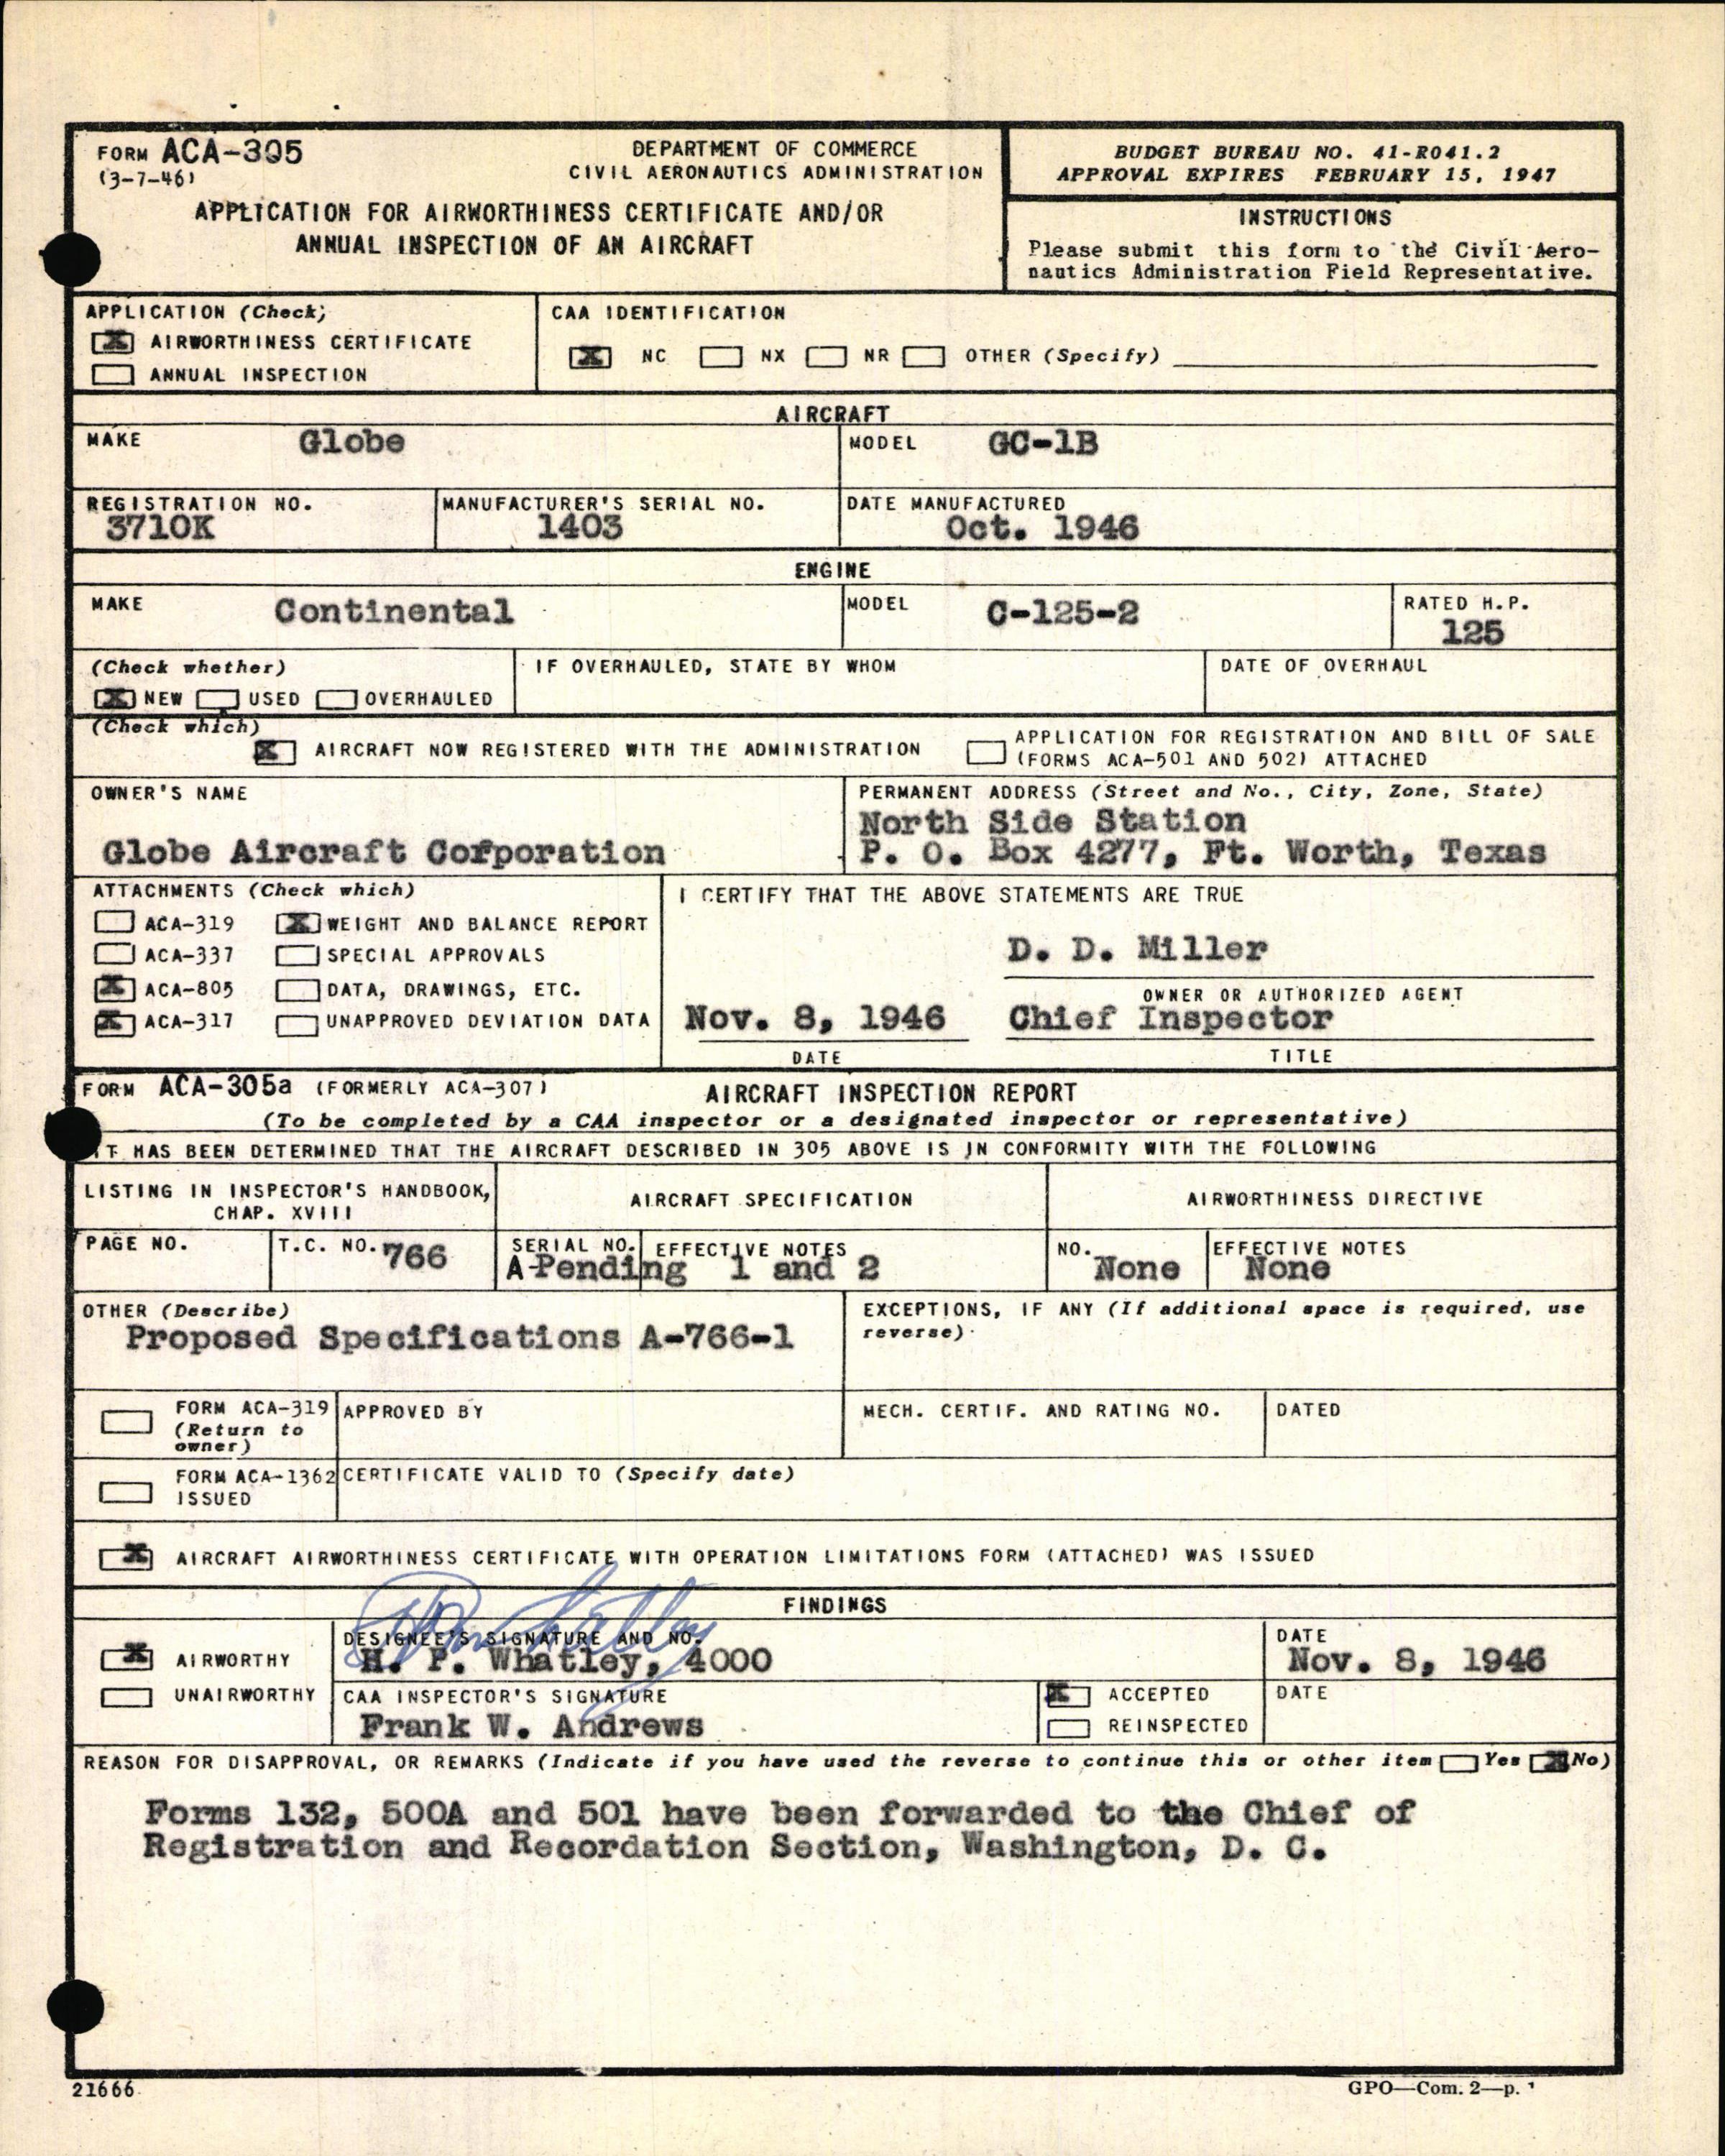 FORM ACA-305
(3-7-46)
DEPARTMENT OF COMMERCE
CIVIL AERONAUTICS ADMINISTRATION
APPLICATION FOR AIRWORTHINESS CERTIFICATE AND/OR
ANNUAL INSPECTION OF AN AIRCRAFT
BUDGET BUREAU NO. 41-R041.2
APPROVAL EXPIRES FEBRUARY 15, 1947
INSTRUCTIONS
Please submit this form to the Civil Aero-
nautics Administration Field Representative.
APPLICATION (Check)
X AIRWORTHINESS CERTIFICATE
ANNUAL INSPECTION
CAA IDENTIFICATION
X NC NX NR OTHER (Specify)
AIRCRAFT
MAKE Globe
MODEL GC-1B
REGISTRATION NO.
3710K
MANUFACTURER'S SERIAL NO.
1403
DATE MANUFACTURED
Oct. 1946
ENGINE
MAKE Continental
MODEL C-125-2
RATED H.P.
125
(Check whether)
X NEW USED OVERHAULED
IF OVERHAULED, STATE BY WHOM
DATE OF OVERHAUL
(Check which)
X AIRCRAFT NOW REGISTERED WITH THE ADMINISTRATION
APPLICATION FOR REGISTRATION AND BILL OF SALE
(FORMS ACA-501 AND 502) ATTACHED
OWNER'S NAME
Globe Aircraft Corporation
PERMANENT ADDRESS (Street and No., City, Zone, State)
North Side Station
P. O. Box 4277, Ft. Worth, Texas
ATTACHMENTS (Check which)
ACA-319 X WEIGHT AND BALANCE REPORT
ACA-337 SPECIAL APPROVALS
X ACA-805 DATA, DRAWINGS, ETC.
X ACA-317 UNAPPROVED DEVIATION DATA
I CERTIFY THAT THE ABOVE STATEMENTS ARE TRUE
D. D. Miller
OWNER OR AUTHORIZED AGENT
Nov. 8, 1946 Chief Inspector
DATE TITLE
FORM ACA-305a (FORMERLY ACA-307) AIRCRAFT INSPECTION REPORT
(To be completed by a CAA inspector or a designated inspector or representative)
IT HAS BEEN DETERMINED THAT THE AIRCRAFT DESCRIBED IN 305 ABOVE IS IN CONFORMITY WITH THE FOLLOWING
LISTING IN INSPECTOR'S HANDBOOK,
CHAP. XVIII
AIRCRAFT SPECIFICATION
AIRWORTHINESS DIRECTIVE
PAGE NO.
T.C. NO. 766
SERIAL NO. EFFECTIVE NOTES
A-Pending 1 and 2
NO. None
EFFECTIVE NOTES
None
OTHER (Describe)
Proposed Specifications A-766-1
EXCEPTIONS, IF ANY (If additional space is required, use
reverse)
FORM ACA-319
(Return to
owner)
APPROVED BY
MECH. CERTIF. AND RATING NO.
DATED
FORM ACA-1362
ISSUED
CERTIFICATE VALID TO (Specify date)
X AIRCRAFT AIRWORTHINESS CERTIFICATE WITH OPERATION LIMITATIONS FORM (ATTACHED) WAS ISSUED
FINDINGS
X AIRWORTHY
UNAIRWORTHY
DESIGNEE'S SIGNATURE AND NO.
H. P. Whatley, 4000
DATE
Nov. 8, 1946
CAA INSPECTOR'S SIGNATURE
Frank W. Andrews
X ACCEPTED
REINSPECTED
DATE
REASON FOR DISAPPROVAL, OR REMARKS (Indicate if you have used the reverse to continue this or other item Yes X No)
Forms 132, 500A and 501 have been forwarded to the Chief of
Registration and Recordation Section, Washington, D. C.
21666
GPO—Com. 2—p.